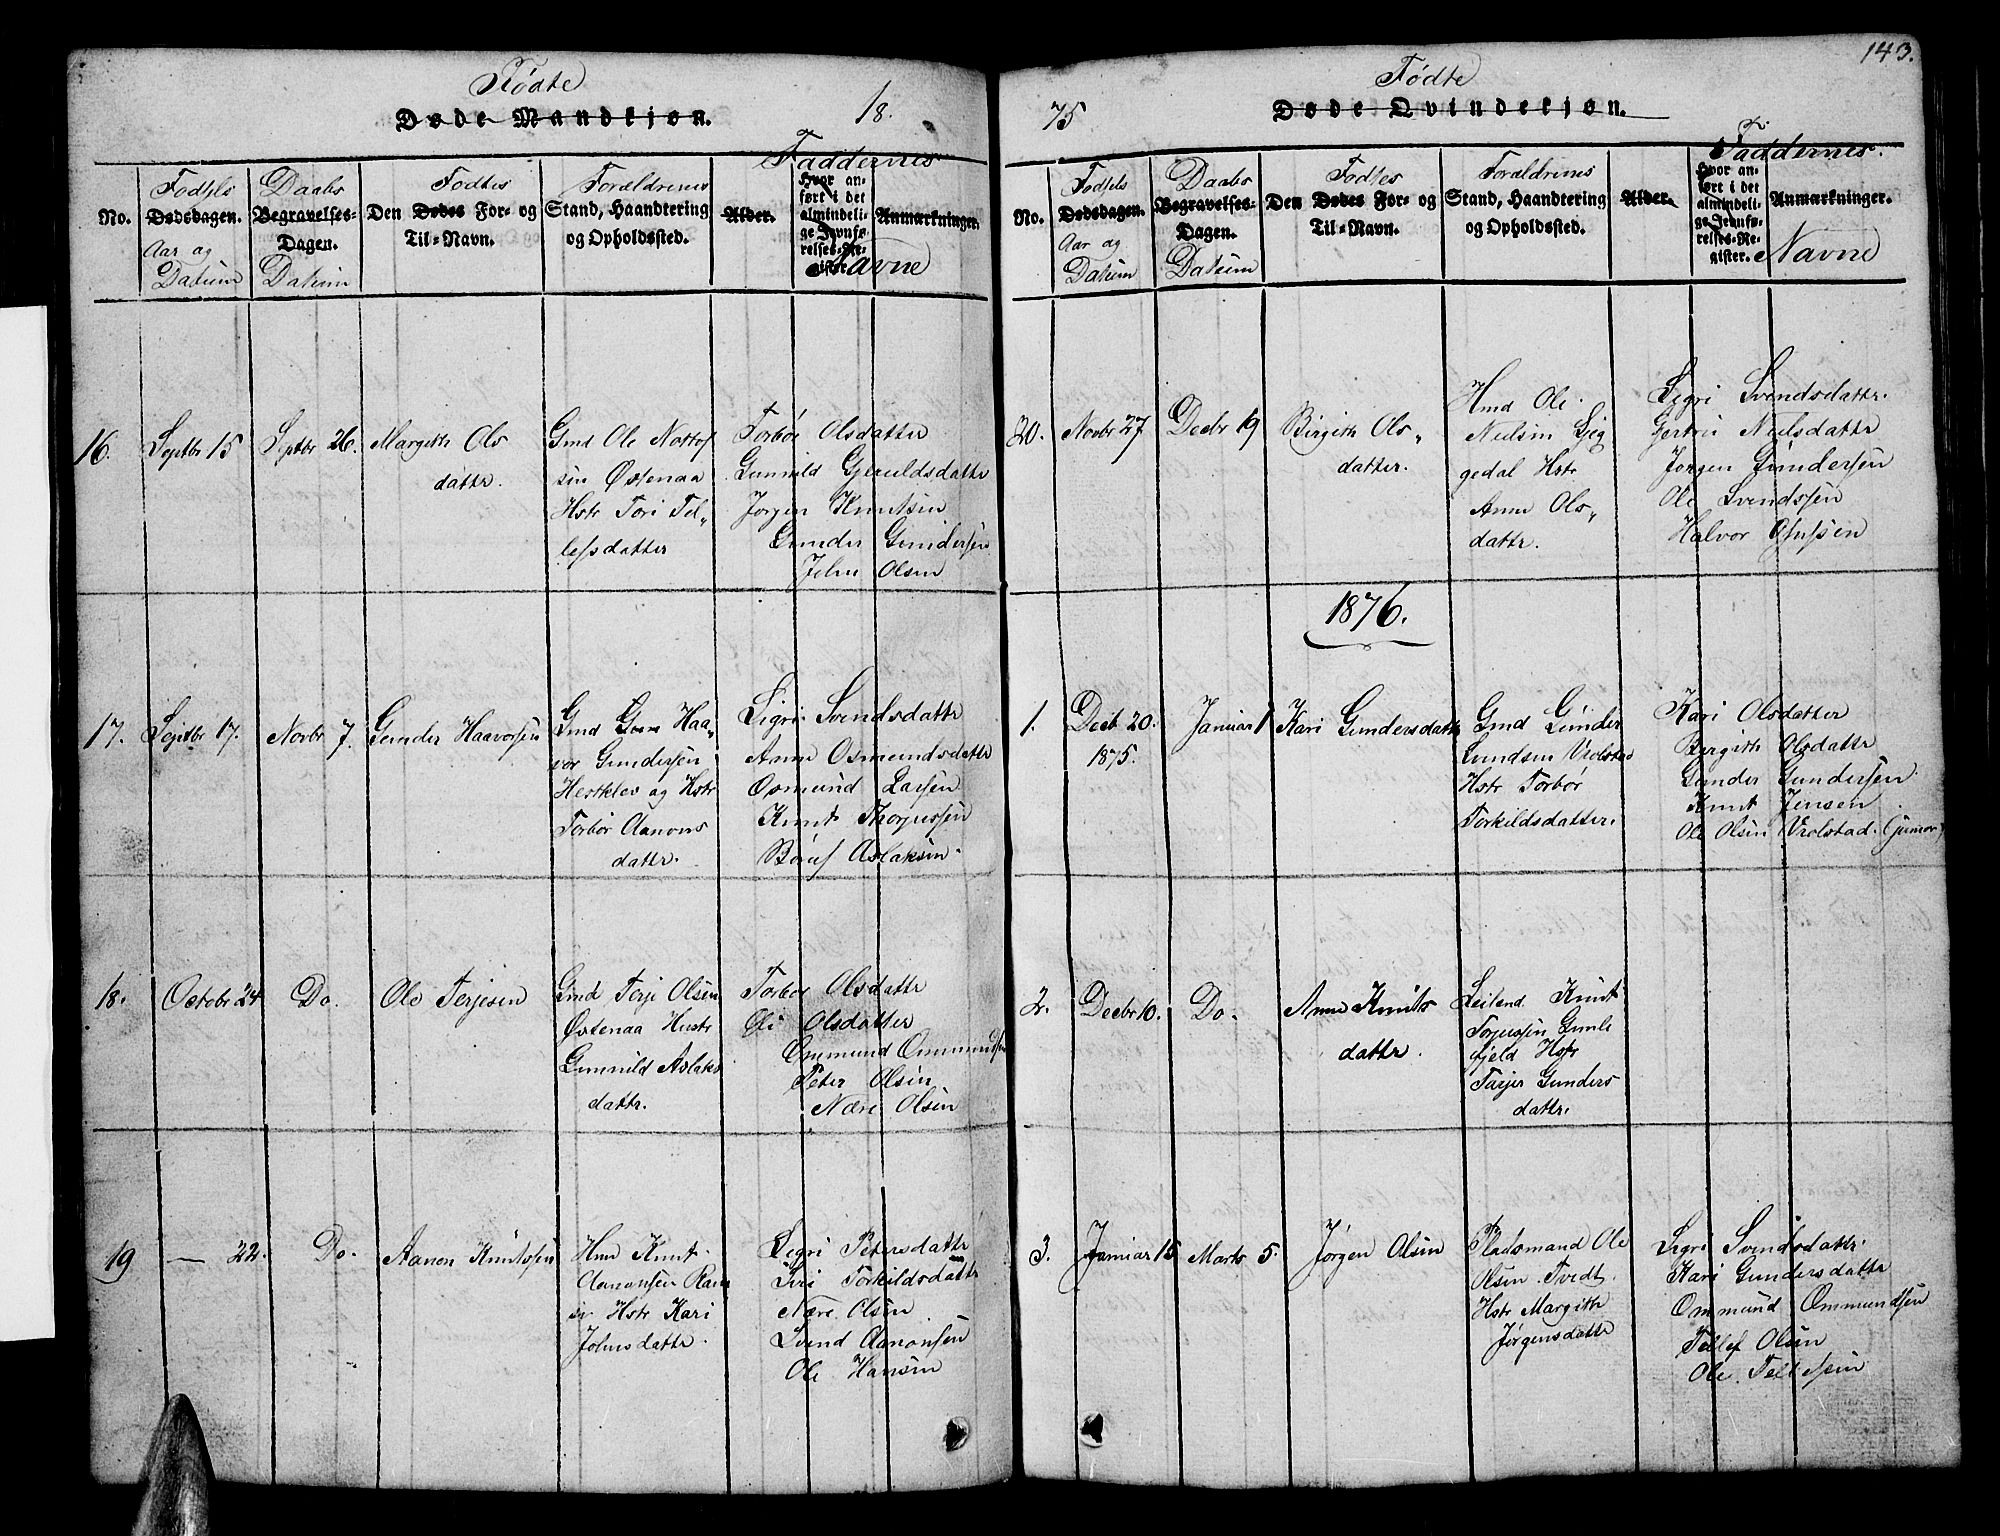 143.
Fødte
Døde Mandkjøn.
18.
No.
Fødsels
Dødsdagen.
Aar og
Datum
Daabs
Begravelses-
Dagen.
Datum
Fødtes
Den Dødes For- og
Til-Navn.
Forældrenes
Stand, Haandtering
og Opholdssted.
Alder.
Faddernes
Hvor an-
ført i det
almindeli-
ge Jevnfø-
relses-Re-
gister.
Anmærkninger.
Navne
16.
Septbr 15
Septbr 26.
Margith Ols
datter.
Gmd Ole Nottof
sen Østenaa
Hstr Tori Tel„
lefsdatter
Torbør Olsdatter
Gunnild Gjeruldsdatter
Jørgen Knutsen
Gunder Gundersen
John Olsen
17.
Septbr 17.
Novbr 7.
Gunder Haavorsen
Gmd Gun Haa„
vor Gundersen
Hestklev og Hstr
Torbør Aanons
datter.
Sigri Svendsdatter
Anne Osmundsdatter
Osmund Larsen
Knut Thorjussen
Børuf Aslaksen.
18.
Octobr 24
Do.
Ole Terjesen
Gmd Terje Olsen
Østenaa Hustr
Gunnild Aslaks
datter.
Torbor Olsdatter
Oli Olsdatter
Ommund Ommundsen
Peter Olsen
Nære Olsen
19
— 22.
Do.
Aanon Knutssen
Hmd Knut
Aanonsen Ram
se Hstr Kari
Johnsdatter.
Sigri Petersdatter
Siri Torkildsdatter
Nære Olsen
Svend Aanonsen
Ole Hansen
75
Fødte
Døde Qvindekjøn.
No.
Fødsels
Dødsdagen.
Aar og
Datum
Daabs
Begravelses-
Dagen.
Datum
Fødtes
Den Dødes For- og
Til-Navn.
Forældrenes
Stand, Haandtering
og Opholdssted.
Alder.
Faddernes.
Hvor an-
ført i det
almindeli-
ge Jevnfø-
relses-Re-
gister.
Anmærkninger.
Navne
20.
Novbr 27
Decbr 19
Birgith Ols„
datter.
Hmd Ole
Nielsen Ljeg
gedal Hstr
Anne Ols„
datter.
Sigri Svendsdatter.
Gertru Nielsdatter
Jørgen Gundersen
Ole Svendssen
Halvor
1876.
1.
Decb 20.
1875.
Januar 1
Kari Gundersdatter
Gmd Gunder
Gundsen Vrolstad
Hstr Torbør
Torkildsdatter.
Kari Olsdatter
Bergith Olsdatter
Gunder Gundersen
Knut Jensen
Ole Olsen Vrolstad. (junior)
2.
Decbr 10.
Do.
Anne Knuts
datter.
Leilend Knut
Torjussen Gunle
fjeld Hstr
Tarjer Gunders
datter.
3.
Januar 15
Marts 5.
Jørgen Olsen
Pladsmand Ole
Olsen Tvedt.
Hstr Margith
Jørgensdatter
Sigri Svendsdatter
Kari Gundersdatter
Ommund Ommundsen
Tellef Olsen
Ole Tellefsen